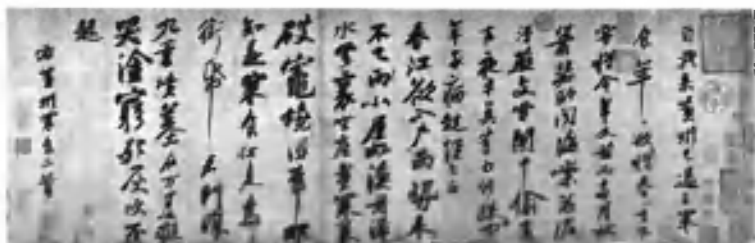 自我來黃州已過三寒
食年〻欲惜春〻去不
容惜今年又苦雨兩月秋
蕭瑟卧聞海棠花泥
汙燕支雪闇中偷負
去夜半真有力何殊少
年子病起頭已白
春江欲入戶雨勢來
不已小屋如漁舟濛〻
水雲裏空庖煮寒菜
破竈燒濕葦那
知是寒食但見烏
銜帋君門深
九重墳墓在万里也擬
哭塗窮死灰吹不
起
右黃州寒食二首